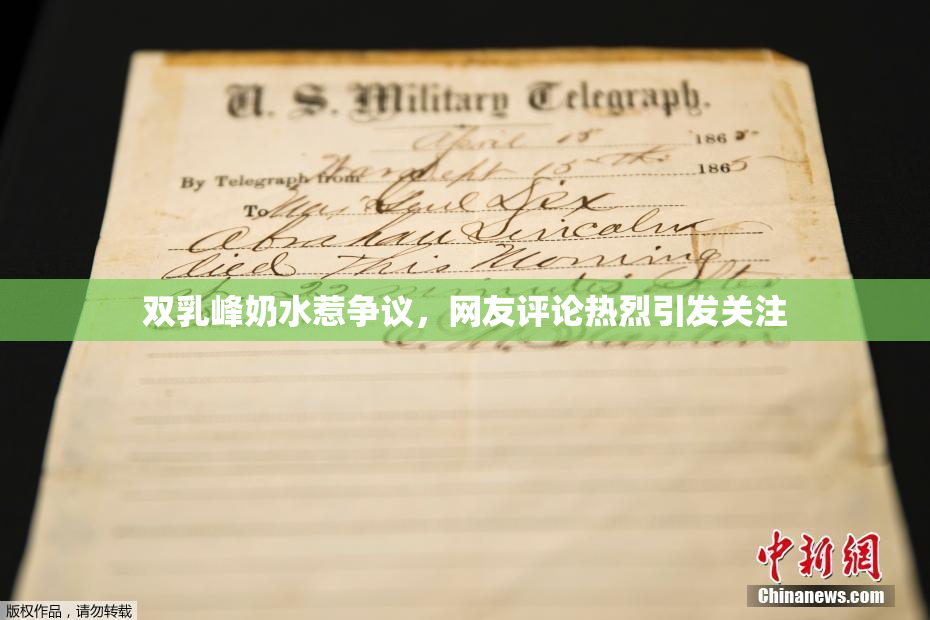 U. S. Military Telegraph.
April 15 1865
By Telegraph from War Dept 15th 1865
To Maj Genl Dix
Abraham Lincoln
died This Morning
22 minutes after
双乳峰奶水惹争议，网友评论热烈引发关注
E. M. Stanton
中新网
Chinanews.com
版权作品，请勿转载